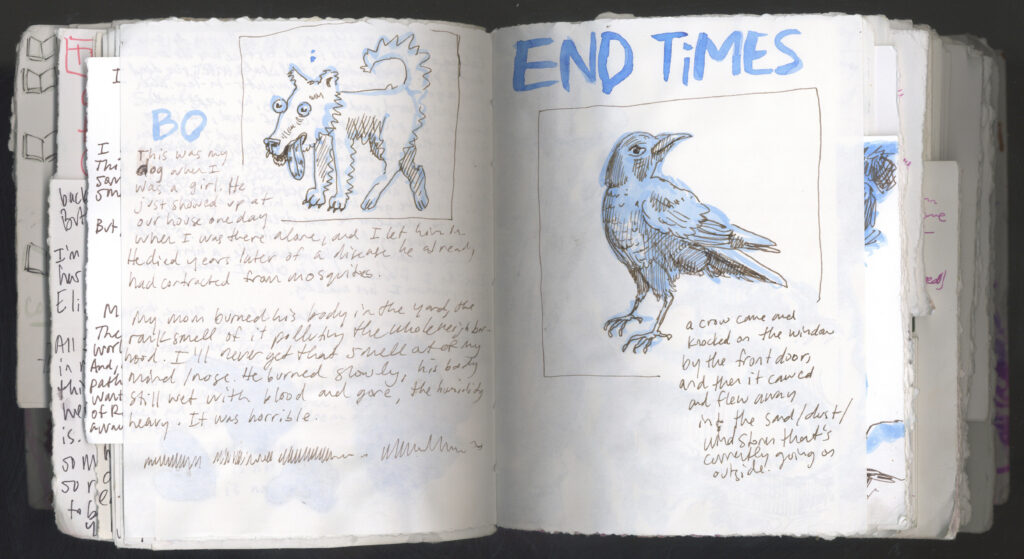 BO
This was my
dog when I
was a girl. He
just showed up at
our house one day
when I was there alone, and I let him in
He died years later of a disease he already
had contracted from mosquitos.
My mom burned his body in the yard, the
rank smell of it polluting the whole neighbor-
hood. I'll never get that smell out of my
mind/nose. He burned slowly, his body
still wet with blood and gore, the humidity
heavy. It was horrible.
END TiMES
a crow came and
knocked on the window
by the front door,
and then it cawed
and flew away
into the sand/dust/
wind storm that's
currently going on
outside.
back
But
I'm
has
Eli
All
in
thi
he
is.
so m
so r
to b
y
I
I
Thi
sam
sm
But
M
The
worl
And,
path
want
of R
away